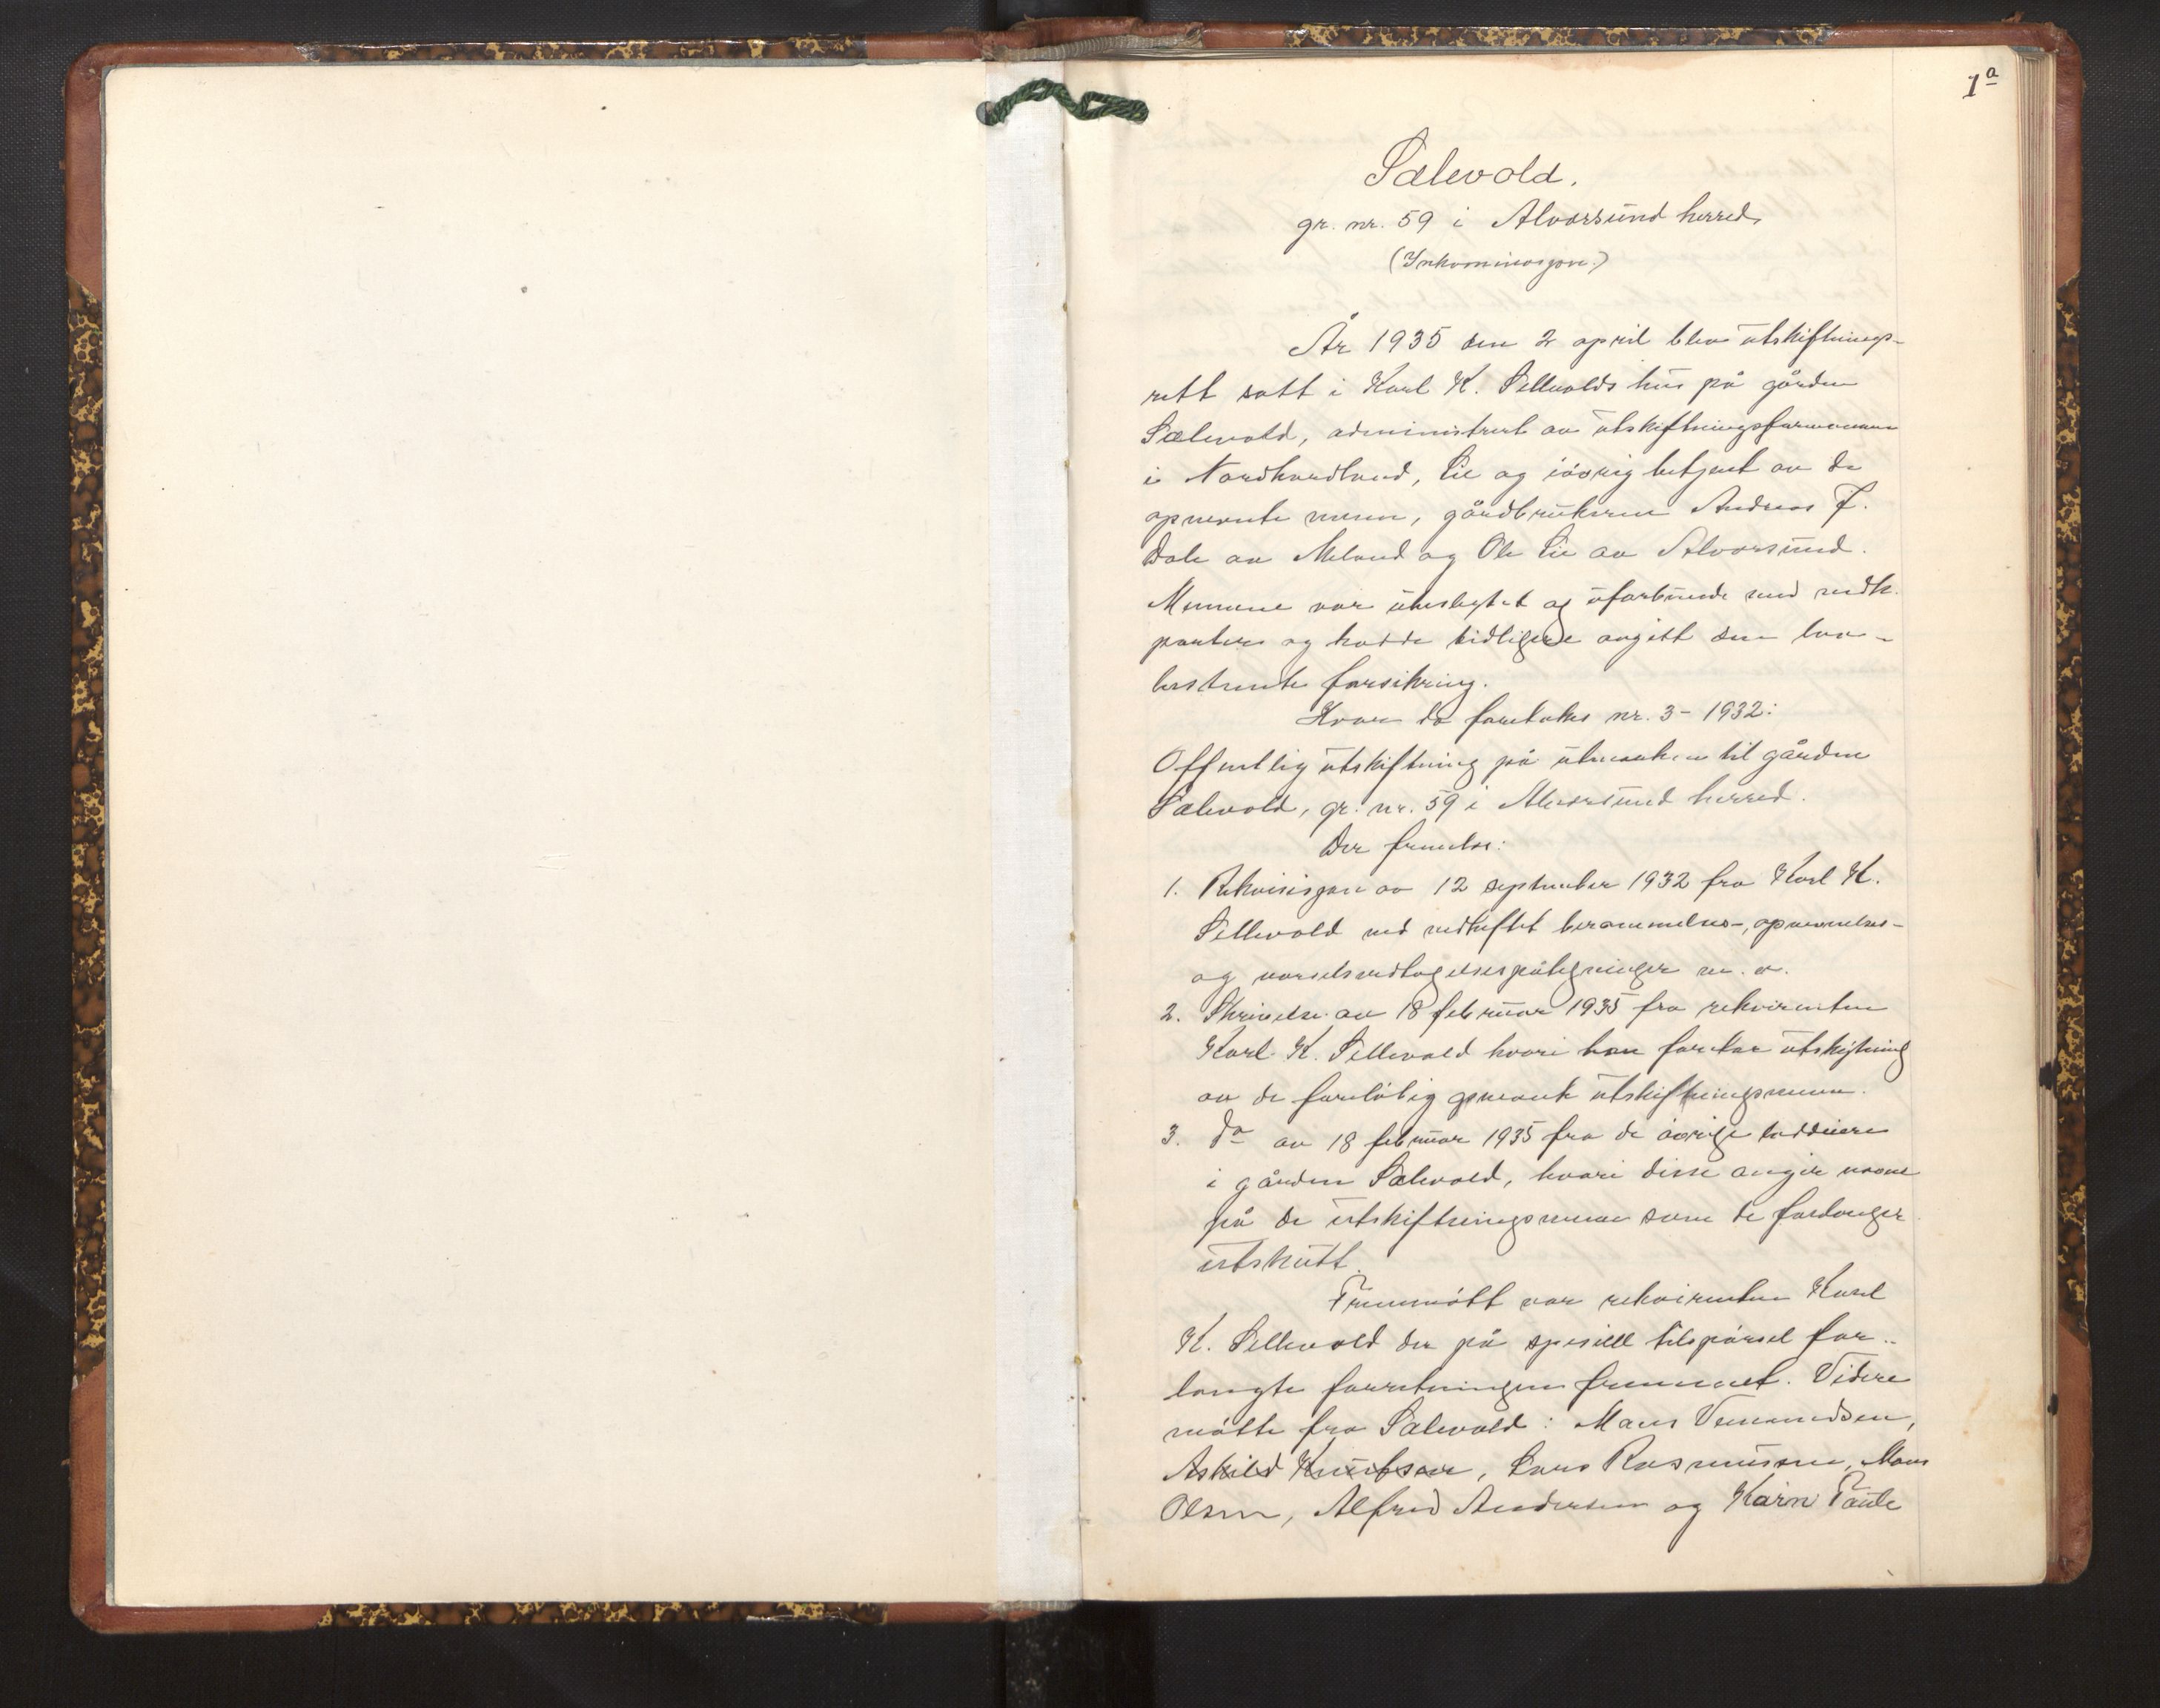 1a
Sælevold.
gr. nr. 59 i Alversund herred.
(Inkaminasjon.)
År 1935 den 2 april blev utskiftnings-
rett satt i Karl K. Sellevolds hus på gården
Sælevold, administrert av utskiftningsformannen
i Nordhordland, Lie og iøvrig betjent av de
opnevnte menn, gårdbrukerne Andreas J.
Dale av Meland og Ole Lie av Alversund.
Mennene var ubeslegtet og uforbundne med vedk.
parter og hadde tidligere avgitt den lov-
bestemte forsikring.
Hvor da foretokes nr. 3 - 1932:
Offentlig utskiftning på utmarken til gården
Sælevold, gr. nr. 59 i Alversund herred.
Der fremlas:
1. Rekvisisjon av 12 september 1932 fra Karl K.
Sellevold med vedheftet berammelses-, opnevnelses-
og varselsvedtagelsespåtegninger m. v.
2. Skrivelse av 18 februar 1935 fra rekvirenten
Karl K. Sellevold hvori han foretar utskytning
av de foreløbig opnevnte utskiftningsmenn.
3. do av 18 februar 1935 fra de øvrige loddeiere
i gården Sælevold, hvori disse angir navne
på de utskiftningsmenn som de forlanger
utskutt.
Fremmøtt var rekvirenten Karl
K. Sellevold der på spesiell tilspørsel for-
langte forretningen fremmet. Videre
møtte fra Sælevold: Mans Vemundsen,
Askild Knutsen, Lars Rasmussen, Mons
Olsen, Alfred Andersen og Karin Paule